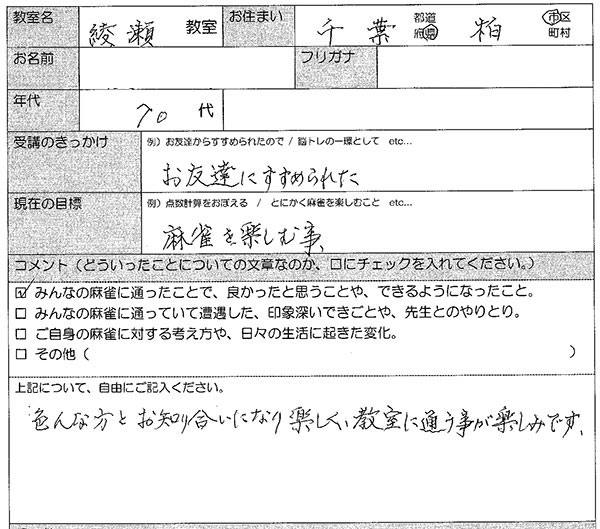 教室名 綾瀬 教室 お住まい 千葉 都道府県 柏 市区町村
お名前 フリガナ
年代 70 代
受講のきっかけ 例）お友達からすすめられたので / 脳トレの一環として etc...
お友達にすすめられた
現在の目標 例）点数計算をおぼえる / とにかく麻雀を楽しむこと etc...
麻雀を楽しむ事、
コメント（どういったことについての文章なのか、口にチェックを入れてください。）
☑ みんなの麻雀に通ったことで、良かったと思うことや、できるようになったこと。
□ みんなの麻雀に通っていて遭遇した、印象深いできごとや、先生とのやりとり。
□ ご自身の麻雀に対する考え方や、日々の生活に起きた変化。
□ その他（ ）
上記について、自由にご記入ください。
色んな方とお知り合いになり楽しく、教室に通う事が楽しみです、